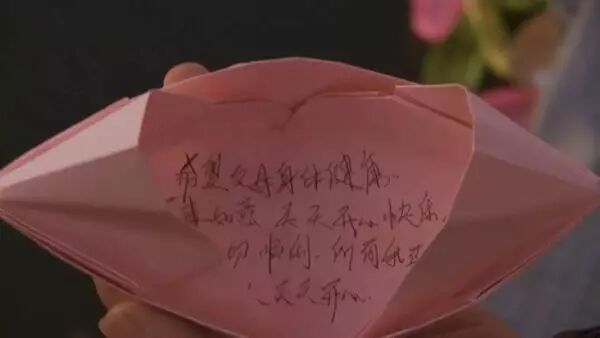 希望父母身体健康.
事如意 天天开心快乐.
切顺利.所有
天天开心.